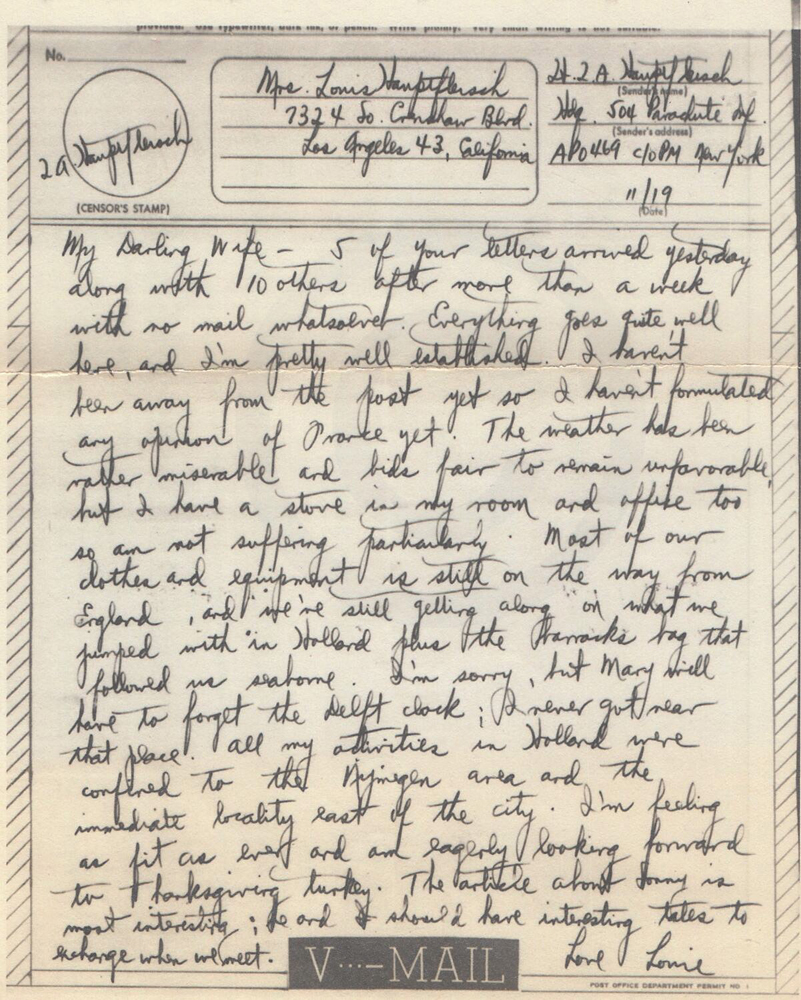 No.
Mrs. Louis Hauptfleisch
7324 So. Crenshaw Blvd.
Los Angeles 43, California
L. A. Hauptfleisch
(Sender's name)
Hdq. 504 Parachute Inf.
(Sender's address)
APO 469 c/o PM New York
11/19
(Date)
LA Hauptfleisch
(CENSOR'S STAMP)
My Darling Wife – 5 of your letters arrived yesterday
along with 10 others after more than a week
with no mail whatsoever. Everything goes quite well
here, and I'm pretty well established. I haven't
been away from the post yet so I haven't formulated
any opinion of France yet. The weather has been
rather miserable and bids fair to remain unfavorable,
but I have a stove in my room and office too
so am not suffering particularly. Most of our
clothes and equipment is still on the way from
England, and we're still getting along on what we
"jumped with" in Holland plus the barracks bag that
followed us seaborne. I'm sorry, but Mary will
have to forget the Delft clock; I never got near
that place. All my activities in Holland were
confined to the Nijmegen area and the
immediate locality east of the city. I'm feeling
as fit as ever and am eagerly looking forward
to Thanksgiving turkey. The article about Sonny is
most interesting; he and I should have interesting tales to
exchange when we meet. Love Louie
V···–MAIL
POST OFFICE DEPARTMENT PERMIT NO 1